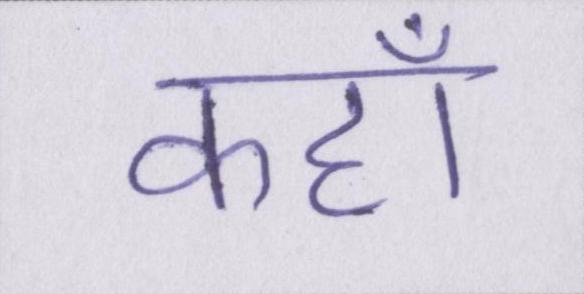 कहाँ